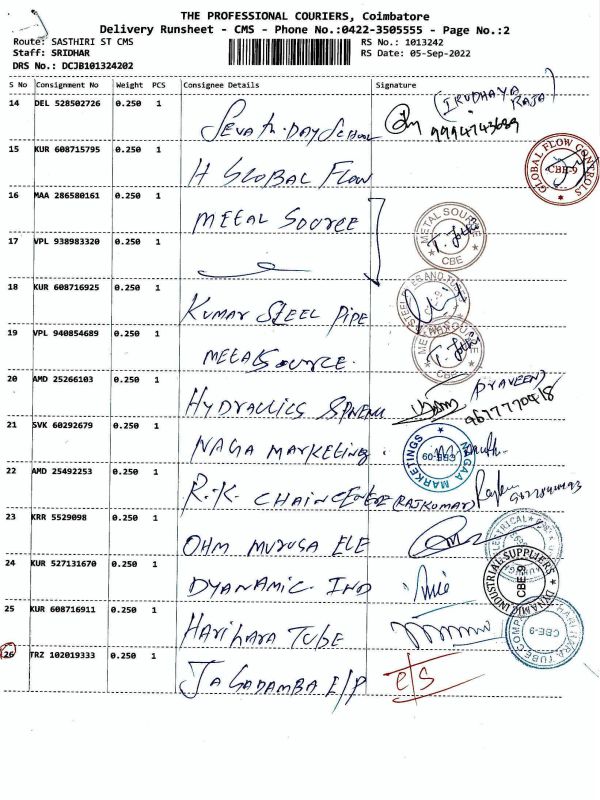 THE PROFESSIONAL COURIERS, Coimbatore
Delivery Runsheet - CMS - Phone No.:0422-3505555 - Page No.:2
Route: SASTHIRI ST CMS
RS No.: 1013242
Staff: SRIDHAR
RS Date: 05-Sep-2022
DRS No.: DCJB101324202
S No Consignment No Weight PCS Consignee Details Signature
14 DEL 528502726 0.250 1
(IRUDHAYA RAJA)
DAY SCHOOL
15 KUR 608715795 0.250 1
H GLOBAL FLOW
GLOBAL FLOW CONTROLS CBE-9
16 MAA 286580161 0.250 1
METAL SOURCE
METAL SOURCE CBE
17 VPL 938983320 0.250 1
18 KUR 608716925 0.250 1
KUMAR STEEL PIPE
19 VPL 940854689 0.250 1
METAL SOURCE
20 AMD 25266103 0.250 1
HYDRAULICS
(PRAVEEN)
21 SVK 60292679 0.250 1
NAGA MARKETING
NAGAA MARKETINGS
22 AMD 25492253 0.250 1
R.K. CHAIN
(RAJKUMAR)
23 KRR 5529098 0.250 1
OHM MURUGA ELE
24 KUR 527131670 0.250 1
DYANAMIC IND
DYNAMIC INDUSTRIAL SUPPLIERS CBE-9
25 KUR 608716911 0.250 1
HARIHARA TUBE
HARIHARA TUBE COMPANY CBE-9
26 TRZ 102019333 0.250 1
JAGADAMBA E/P
e/s